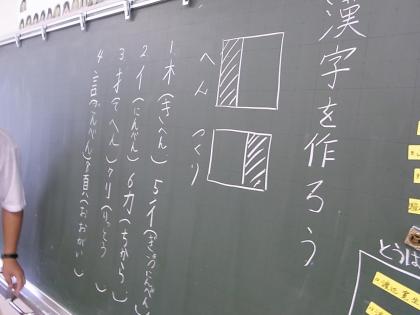 漢字を作ろう
へん
つくり
1 木（きへん）
2 イ（にんべん）
3 扌（てへん）
4 言（ごんべん）
5 彳（ぎょうにんべん）
6 力（ちから）
7 刂（りっとう）
8 頁（おおがい）
とうば